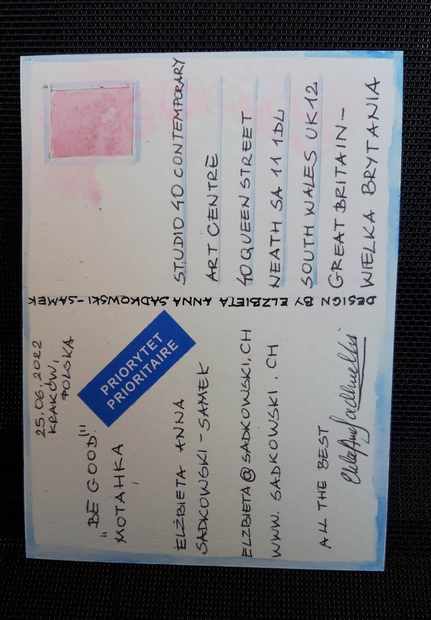 25.06.2022
KRAKÓW,
POLSKA
"BE GOOD"!!
МОТАНКА
PRIORYTET
PRIORITAIRE
ELŻBIETA ANNA
SADKOWSKI-SAMEK
ELZBIETA@SADKOWSKI.CH
WWW. SADKOWSKI.CH
ALL THE BEST
DESIGN BY ELŻBIETA ANNA SADKOWSKI-SAMEK
STUDIO 40 CONTEMPORARY
ART CENTRE
40 QUEEN STREET
NEATH SA 11 1DL
SOUTH WALES UK 12
GREAT BRITAIN-
WIELKA BRYTANIA